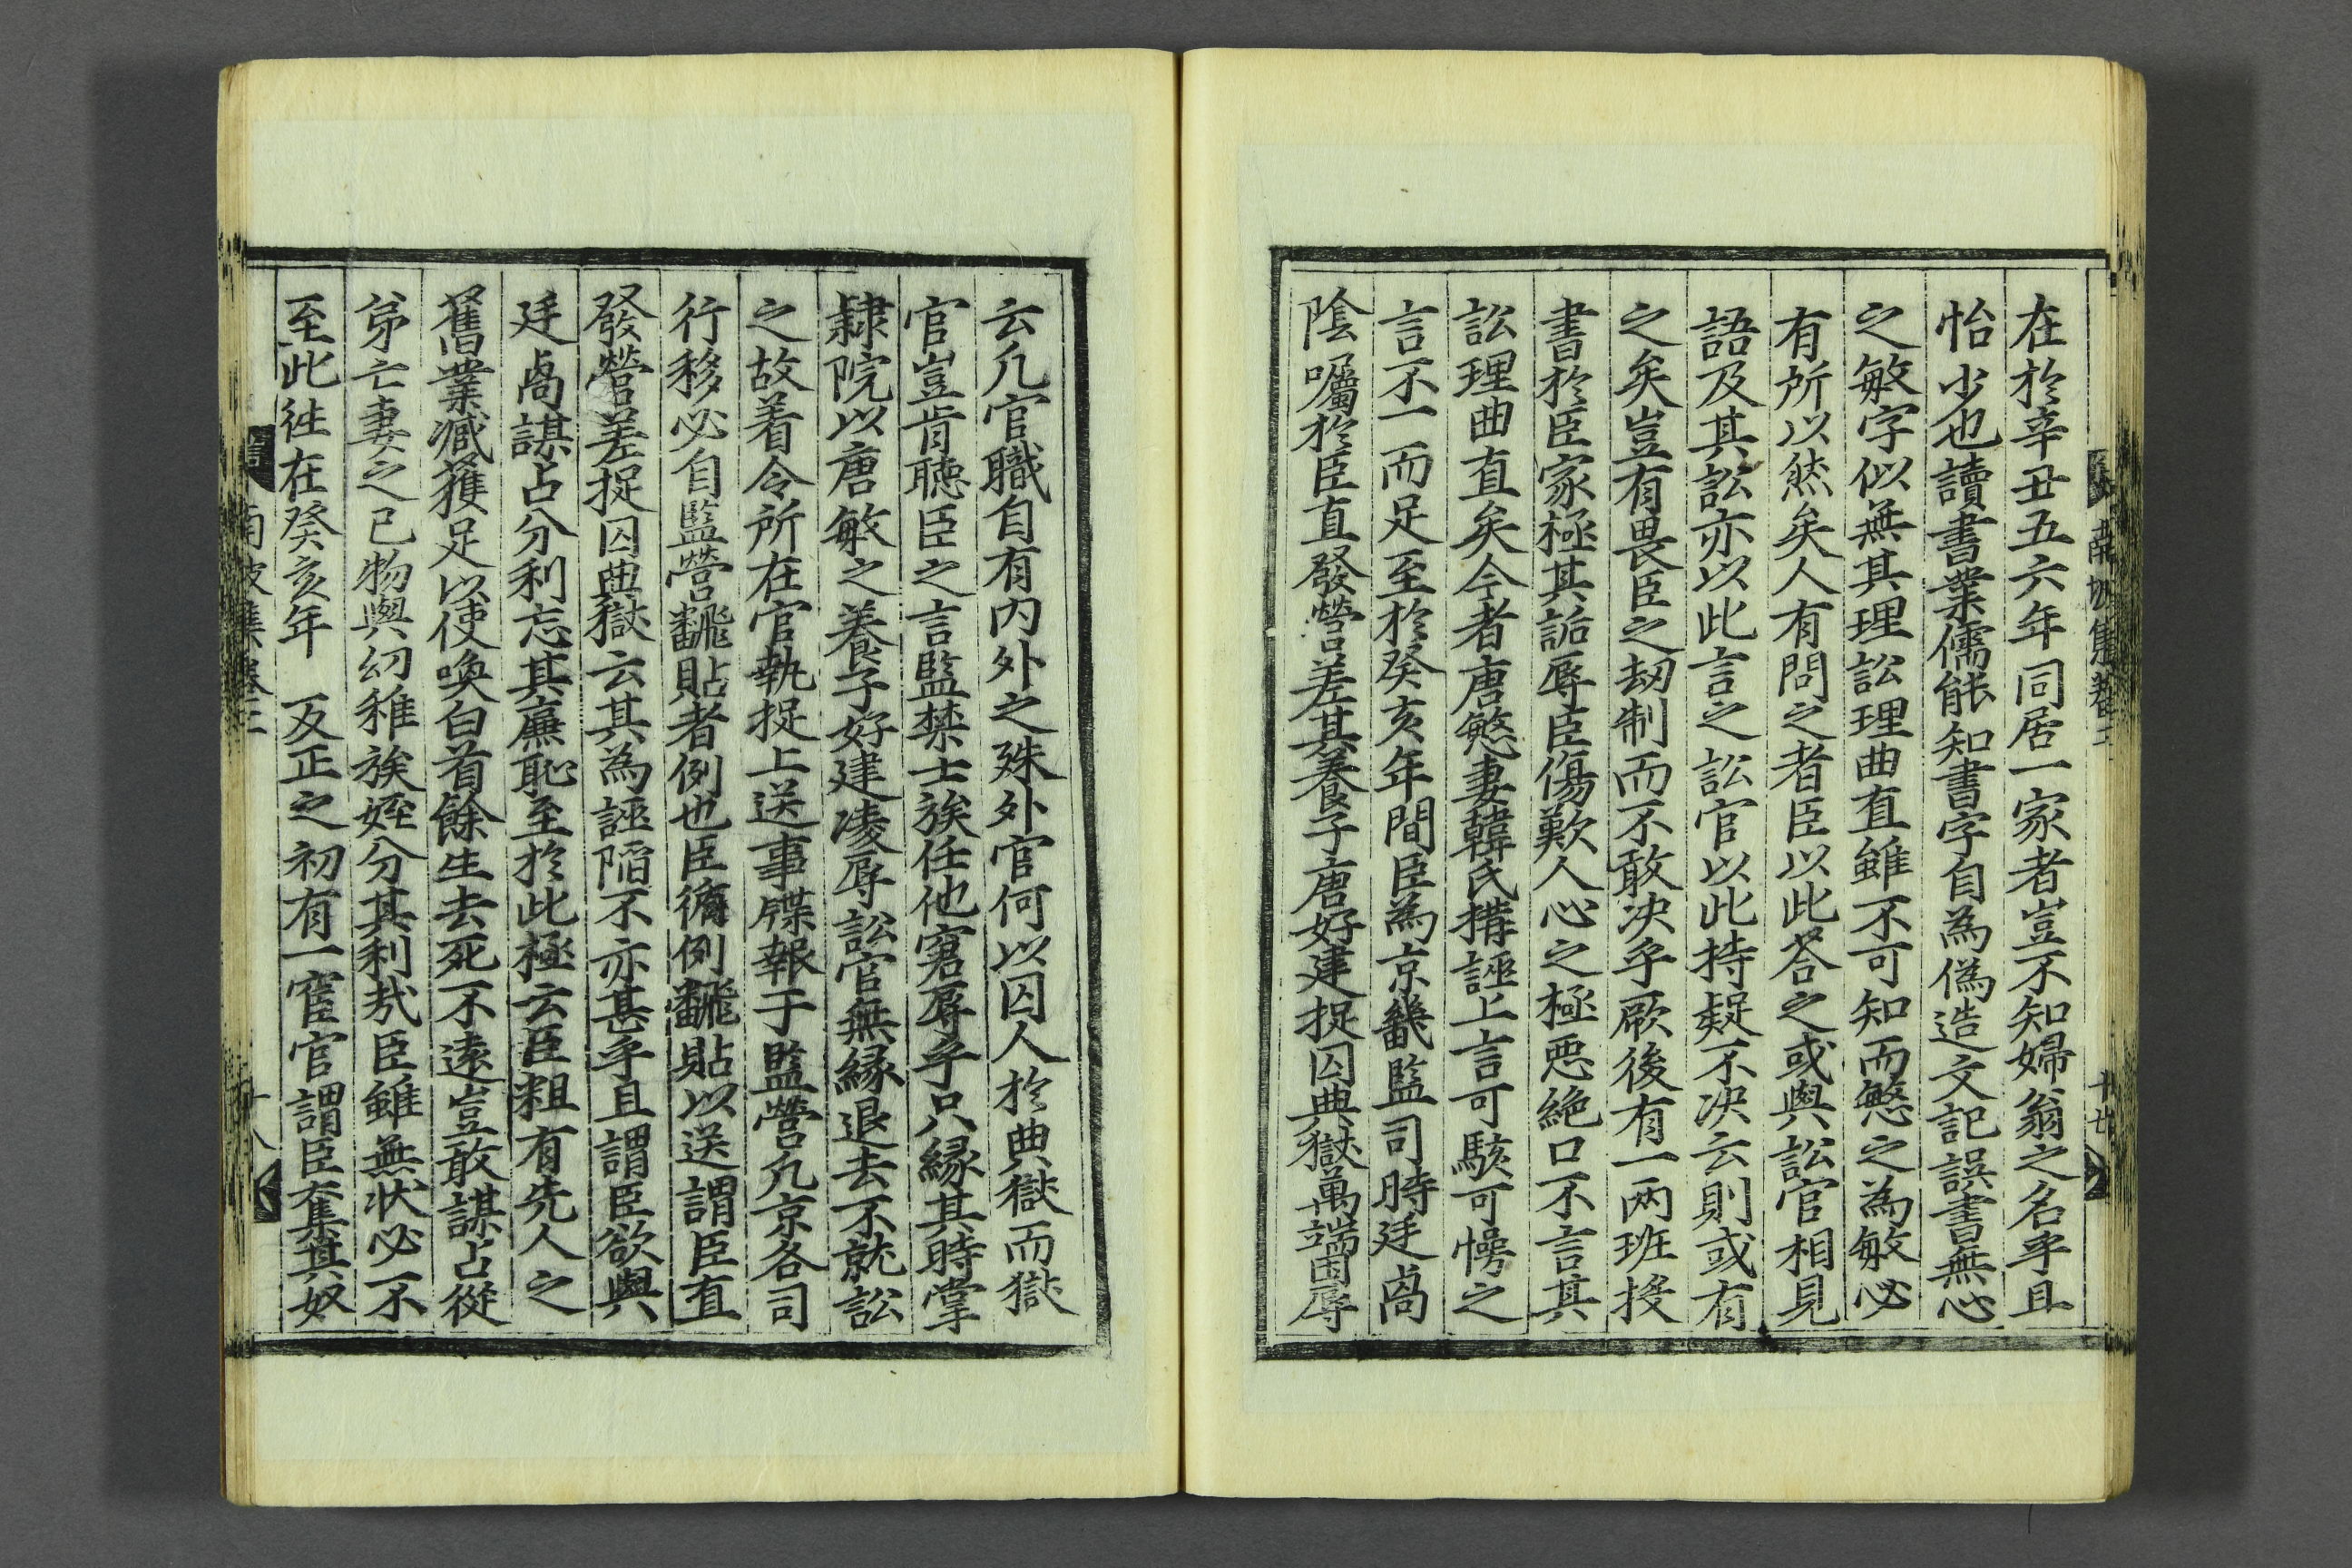 在於辛丑五六年同居一家者豈不知婦翁之名乎且
怡少也讀書業儒能知書字自為偽造文記誤書無心
之敏字似無其理訟理曲直雖不可知而慜之為敏必
有所以然矣人有問之者臣以此答之或與訟官相見
語及其訟亦以此言之訟官以此持疑不决云則或有
之矣豈有畏臣之刼制而不敢决乎厥後有一两班投
書於臣家極其詬辱臣傷歎人心之極惡絶口不言其
訟理曲直矣今者唐慜妻韓氏搆誣上言可駭可愕之
言不一而足至於癸亥年間臣為京畿監司時廷卨
陰囑於臣直發營差其養子唐好建捉囚典獄萬端困辱
南坡集卷三
十七
云凡官職自有内外之殊外官何以囚人於典獄而獄
官豈肯聽臣之言監禁士族任他窘辱乎只縁其時掌
隷院以唐敏之養子好建凌辱訟官無縁退去不就訟
之故着令所在官執捉上送事牒報于監營凡京各司
行移必自監營飜貼者例也臣循例飜貼以送謂臣直
發營差捉囚典獄云其為誣陷不亦甚乎且謂臣欲與
廷卨謀占分利忘其廉恥至於此極云臣粗有先人之
舊業臧獲足以使喚白首餘生去死不遠豈敢謀占從
弟亡妻之已物與幼稚族姪分其利㦲臣雖無狀必不
至此徃在癸亥年　反正之初有一宦官謂臣奪其奴
南坡集卷三
十八